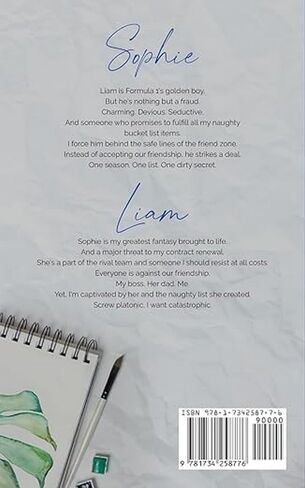 Sophie
Liam is Formula 1's golden boy.
But he's nothing but a fraud.
Charming. Devious. Seductive.
And someone who promises to fulfill all my naughty
bucket list items.
I force him behind the safe lines of the friend zone.
Instead of accepting our friendship, he strikes a deal.
One season. One list. One dirty secret.
Liam
Sophie is my greatest fantasy brought to life.
And a major threat to my contract renewal.
She's a part of the rival team and someone I should resist at all costs.
Everyone is against our friendship.
My boss. Her dad. Me.
Yet, I'm captivated by her and the naughty list she created.
Screw platonic, I want catastrophic.
ISBN 978-1-7342587-7-6
90000
9 781734 258776